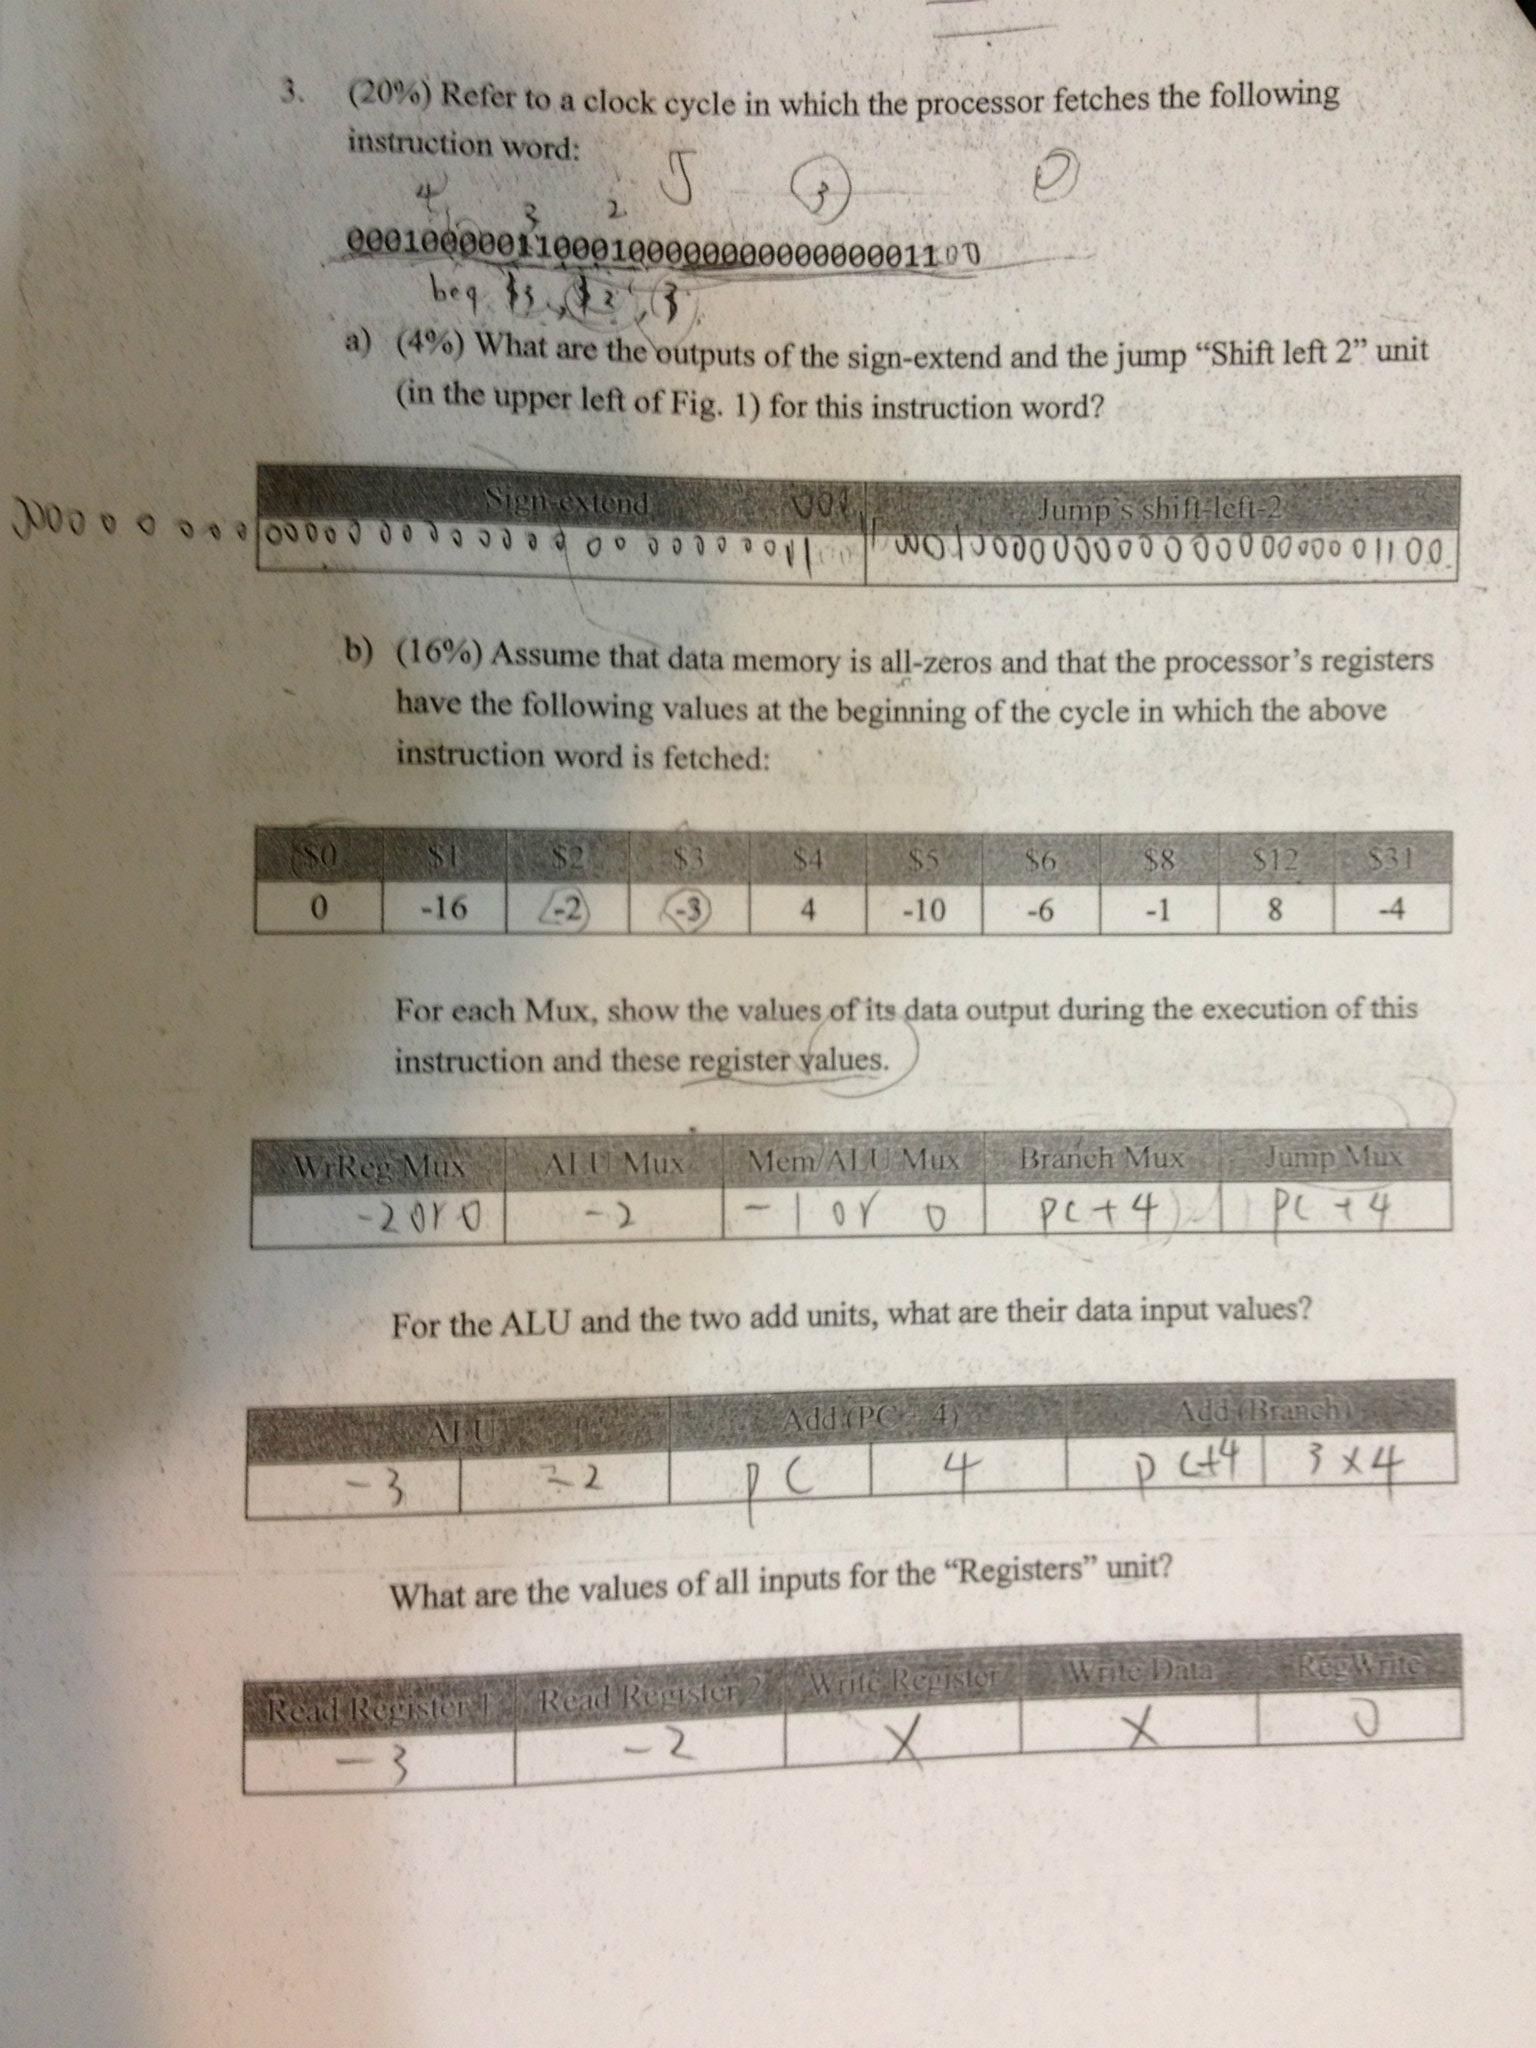 3. (20%) Refer to a clock cycle in which the processor fetches the following
instruction word:
4 3 2 5 3 0
00010000011000100000000000000011 00
beq $3, $2, 3
a) (4%) What are the outputs of the sign-extend and the jump “Shift left 2” unit
(in the upper left of Fig. 1) for this instruction word?
Sign-extend Jump's shift-left-2
b) (16%) Assume that data memory is all-zeros and that the processor's registers
have the following values at the beginning of the cycle in which the above
instruction word is fetched:
$0 $1 $2 $3 $4 $5 $6 $8 $12 $31
0 -16 -2 -3 4 -10 -6 -1 8 -4
For each Mux, show the values of its data output during the execution of this
instruction and these register values.
WrReg Mux ALU Mux Mem/ALU Mux Branch Mux Jump Mux
-2 or 0 -2 -1 or 0 PC+4 PC+4
For the ALU and the two add units, what are their data input values?
ALU Add (PC + 4) Add (Branch)
-3 -2 PC 4 PC+4 3x4
What are the values of all inputs for the “Registers” unit?
Read Register 1 Read Register 2 Write Register Write Data RegWrite
-3 -2 X X 0